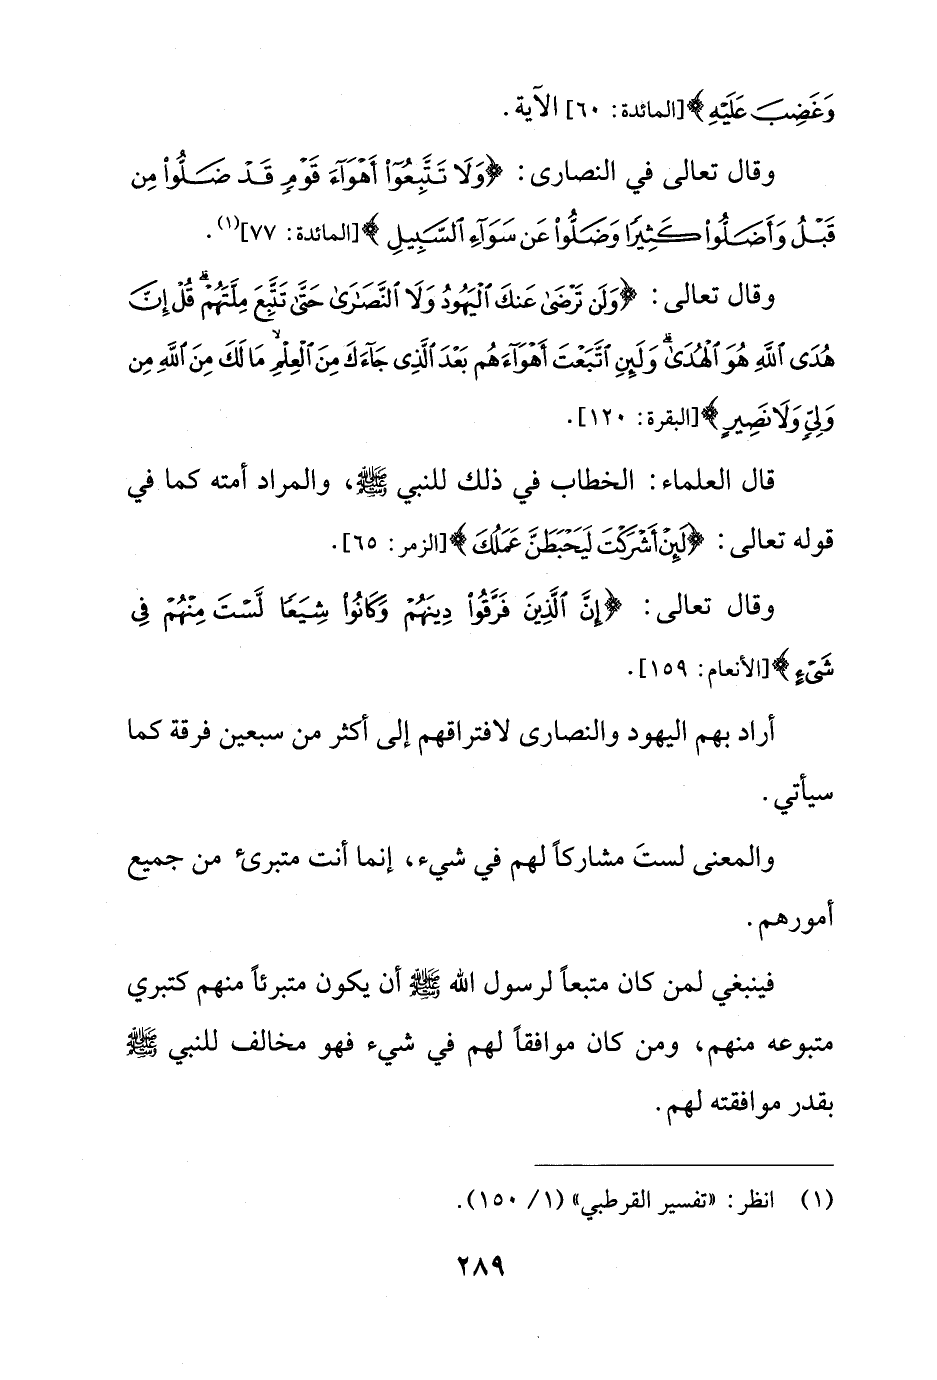 وَغَضِبَ عَلَيْهِ﴾[المائدة: ٦٠] الآية.
وقال تعالى في النصارى: ﴿وَلَا تَتَّبِعُوٓا۟ أَهْوَآءَ قَوْمٍ قَدْ ضَلُّوا۟ مِن
قَبْلُ وَأَضَلُّوا۟ كَثِيرًا وَضَلُّوا۟ عَن سَوَآءِ ٱلسَّبِيلِ﴾[المائدة: ٧٧](١).
وقال تعالى: ﴿وَلَن تَرْضَىٰ عَنكَ ٱلْيَهُودُ وَلَا ٱلنَّصَـٰرَىٰ حَتَّىٰ تَتَّبِعَ مِلَّتَهُمْ ۗ قُلْ إِنَّ
هُدَى ٱللَّهِ هُوَ ٱلْهُدَىٰ ۗ وَلَئِنِ ٱتَّبَعْتَ أَهْوَآءَهُم بَعْدَ ٱلَّذِى جَآءَكَ مِنَ ٱلْعِلْمِ ۙ مَا لَكَ مِنَ ٱللَّهِ مِن
وَلِىٍّ وَلَا نَصِيرٍ﴾[البقرة: ١٢٠].
قال العلماء: الخطاب في ذلك للنبي ﷺ، والمراد أمته كما في
قوله تعالى: ﴿لَئِنْ أَشْرَكْتَ لَيَحْبَطَنَّ عَمَلُكَ﴾[الزمر: ٦٥].
وقال تعالى: ﴿إِنَّ ٱلَّذِينَ فَرَّقُوا۟ دِينَهُمْ وَكَانُوا۟ شِيَعًا لَّسْتَ مِنْهُمْ فِى
شَىْءٍ﴾[الأنعام: ١٥٩].
أراد بهم اليهود والنصارى لافتراقهم إلى أكثر من سبعين فرقة كما
سيأتي.
والمعنى لستَ مشاركاً لهم في شيء، إنما أنت متبرئ من جميع
أمورهم.
فينبغي لمن كان متبعاً لرسول الله ﷺ أن يكون متبرئاً منهم كتبري
متبوعه منهم، ومن كان موافقاً لهم في شيء فهو مخالف للنبي ﷺ
بقدر موافقته لهم.
(١) انظر: «تفسير القرطبي» (١/ ١٥٠).
٢٨٩